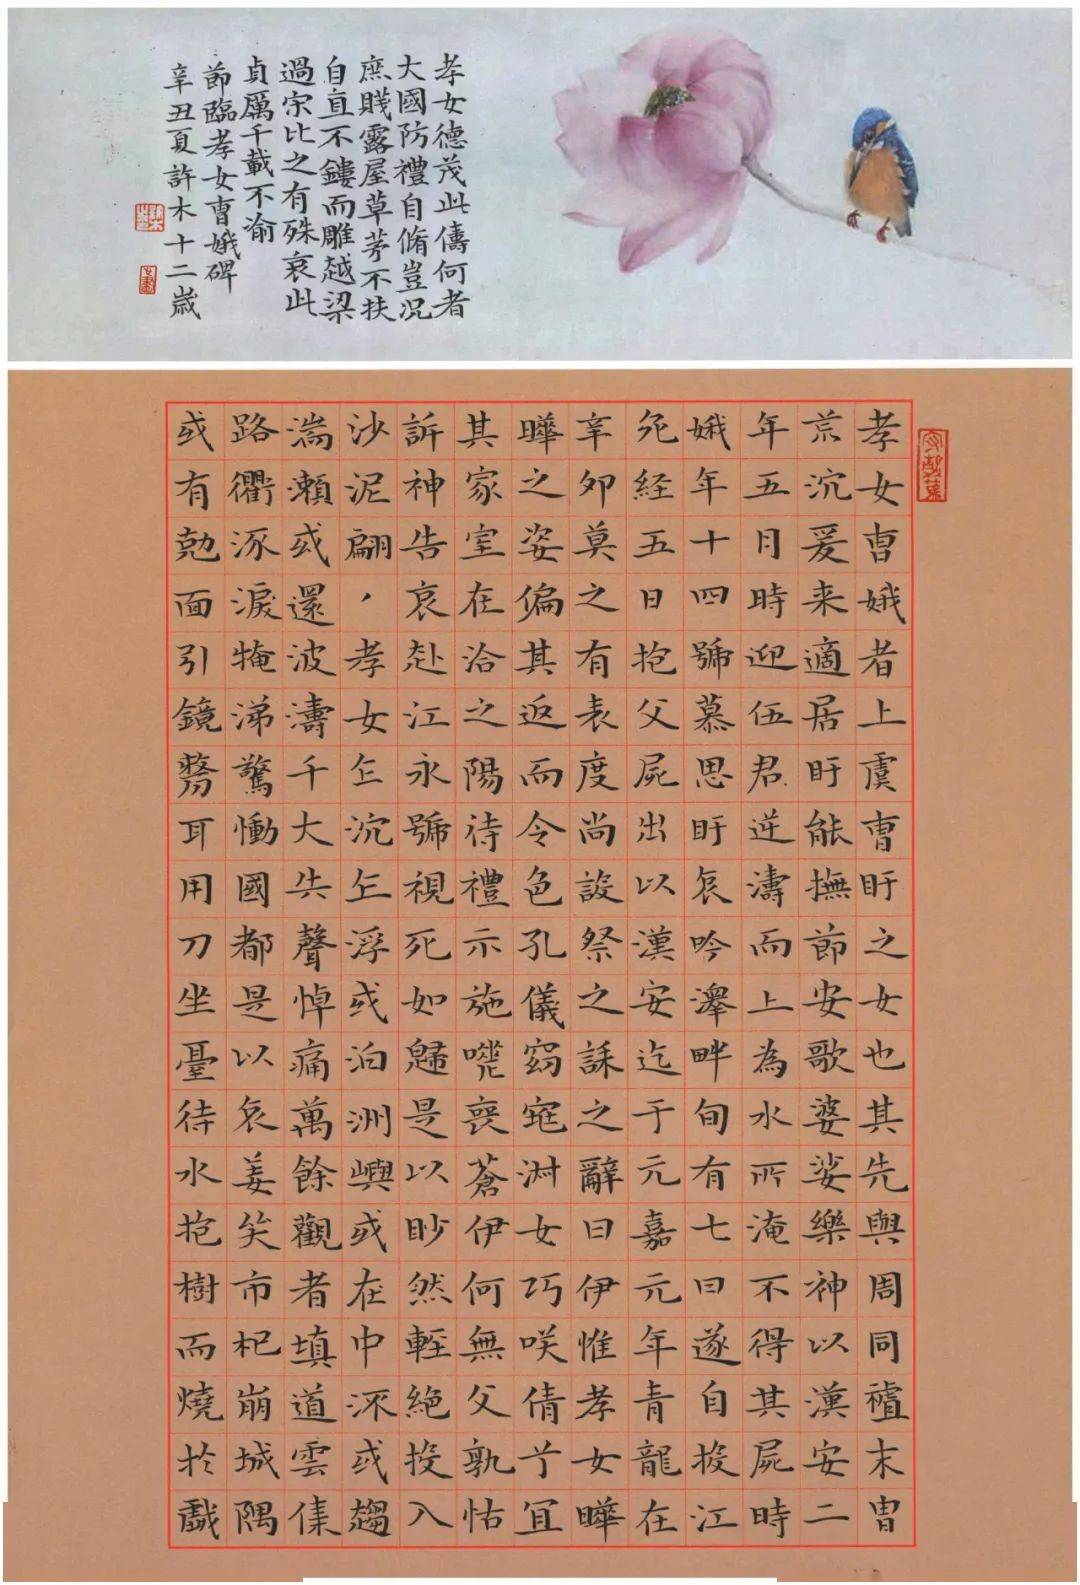 孝女德茂此儔何者
大國防禮自脩豈況
庶賤露屋草茅不扶
自直不鏤而雕越梁
過宋比之有殊哀此
貞厲千載不渝
節臨孝女曹娥碑
辛丑夏許木十二歲
孝女曹娥者上虞曹盱之女也其先與周同禮末胄
荒沉爰来適居盱能撫節安歌婆娑樂神以漢安二
年五月時迎伍君逆濤而上為水所淹不得其屍時
娥年十四號慕思盱哀吟澤畔旬有七日遂自投江
死経五日抱父屍出以漢安迄于元嘉元年青龍在
辛卯莫之有表度尚設祭之誄之辭曰伊惟孝女曄
曄之姿偏其返而令色孔儀窈窕淑女巧咲倩兮宜
其家室在洽之陽待禮示施嗟喪蒼伊何無父孰怙
訴神告哀赴江永號視死如歸是以眇然輕絕投入
沙泥翩，孝女乍沉乍浮或泊洲嶼或在中深或趨
湍瀨或還波濤千大失聲悼痛萬餘觀者填道雲集
路衢涿淚掩涕驚慟國都是以哀姜哭市杞崩城隅
或有勊面引鏡剺耳用刀坐臺待水抱樹而燒於戲